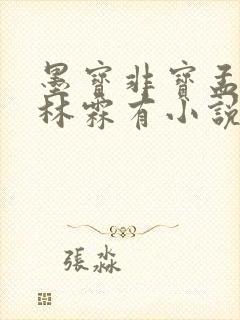 墨寶非寶孟
林霖有小說
張淼